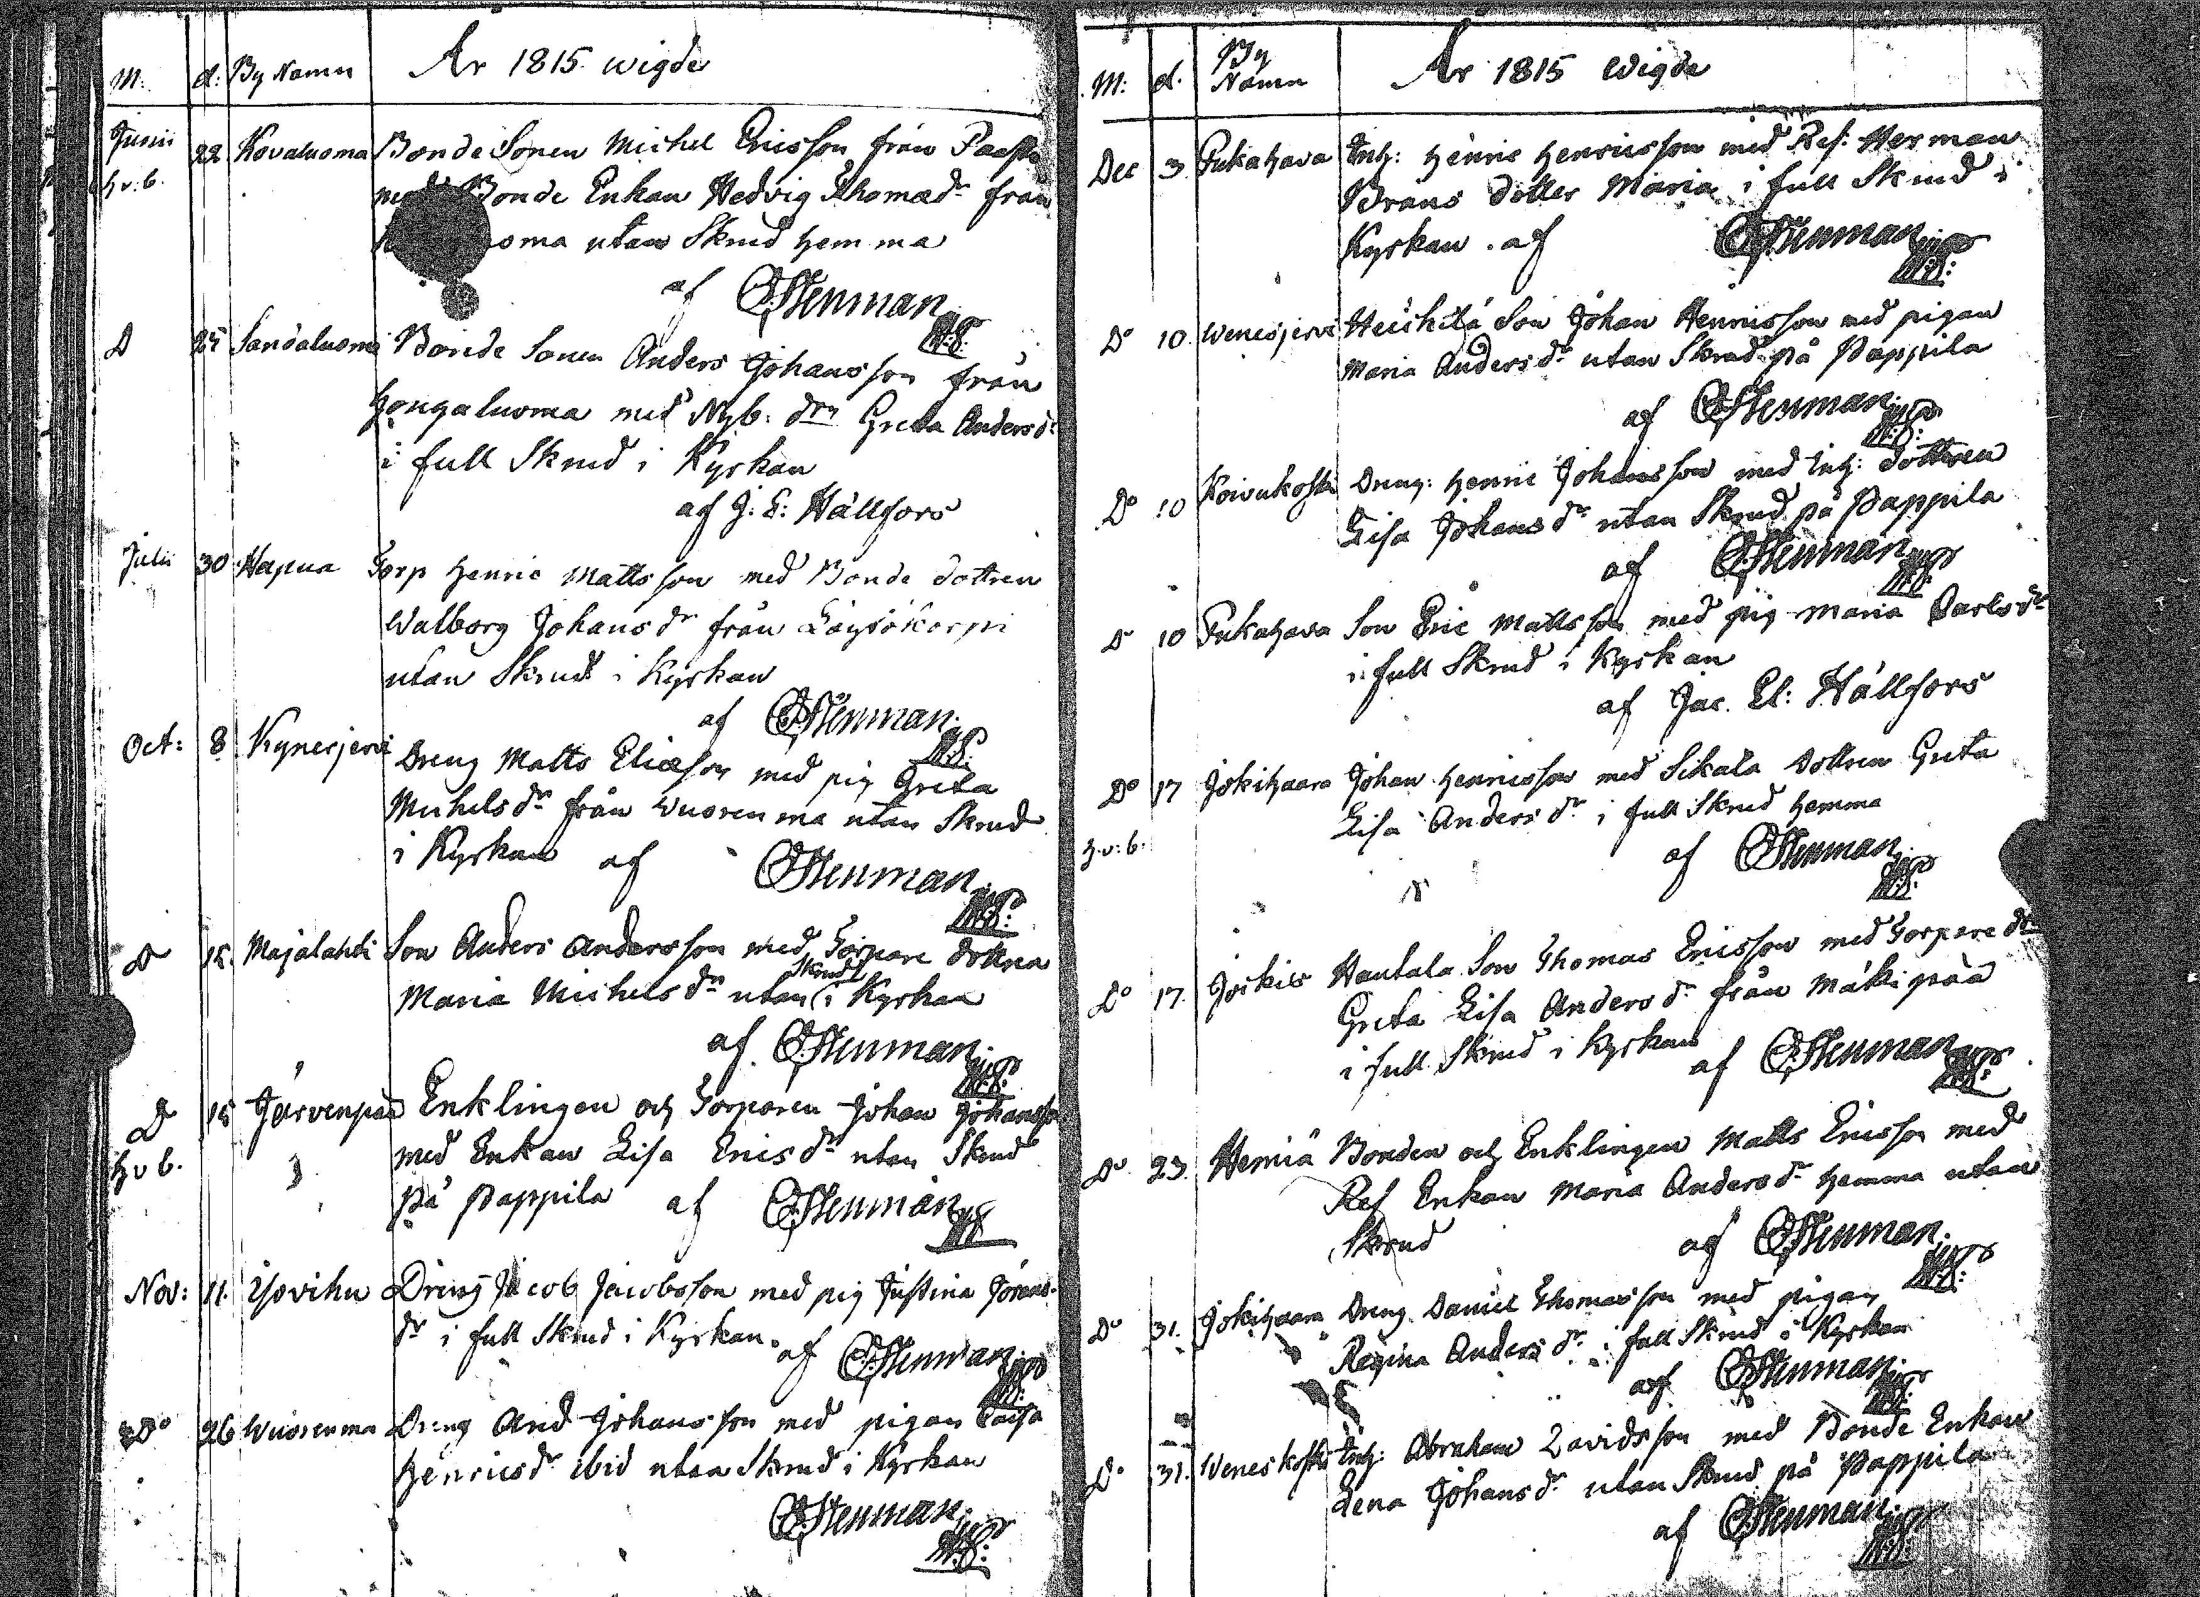 M: d: By Namn År 1815 wigde
Junii 22 Kovaluoma Bonde Sonen Michel Ericsson från
h.v:b. Bonde Enkan Hedvig Thomæd:r från
oma utan Skrud hemma
af Stenman
D 25 Sandaluoma Bonde Sonen Anders Johansson från
Hongaluoma med Nyb: d:rn Greta Andersd:r
i full Skrud i Kyrkan
af J: E: Hällfors
Julii 30 Hapua Torp Henric Mattsson med Bonde dottren
Walborg Johansd:r från
utan Skrud i Kyrkan
af Stenman
Oct: 8 Kynesjervi Dreng Matts Eliæson med pig Greta
Michelsd:r från Wuorenma utan Skrud
i Kyrkan af Stenman
D 15. Majalahti Son Anders Andersson med Torpare dottren
Maria Michelsd:r utan Skrud i Kyrkan
af Stenman
D 15 Järvenpää Enklingen och Torparen Johan Johansson
h v b. med Enkan Lisa Ericsd:r utan Skrud
på Pappila af Stenman
Nov: 11. Dreng Jacob Jacobsson med pig Justina Jörans-
d:r i full Skrud i Kyrkan. af Stenman
D:o 26 Wuorenma Dreng And Johansson med pigan
Henricsd:r ibid utan Skrud i Kyrkan
Stenman
M: d. By Namn År 1815 Wigde
Dec 3 Pukahava Inh: Henric Henricsson med Ref: Herman
Bråns dotter Maria i full Skrud i
Kyrkan. af Stenman
D:o 10 Wenesjervi Heickilä Son Johan Henricsson med pigan
Maria Andersd:r utan Skrud på Pappila
af Stenman
D:o 10 Koivukoski Dreng: Henric Johansson med Inh: dottren
Lisa Johansd:r utan Skrud på Pappila
af Stenman
D 10 Pukahava Son Eric Mattsson med pig Maria Carlsd:r
i full Skrud i Kyrkan
af Jac. El: Hällfors
D:o 17 Jokihaara Johan Henricsson med Sikala dottren Greta
h.v:b. Lisa Andersd:r i full Skrud hemma
af Stenman
D:o 17. Jockis Hautala Son Thomas Ericsson med Torpare d:r
Greta Lisa Andersd:r från Mäkipää
i full Skrud i Kyrkan af Stenman
D:o 23. Hemiä Bonden och Enklingen Matts Ericsson med
Ref Enkan Maria Andersd:r hemma utan
Skrud af Stenman
D:o 31. Jokihaara Dreng Daniel Thomasson med pigan
Regina Andersd:r i full Skrud i Kyrkan
af Stenman
D:o 31. Weneskoski Inh: Abraham Davidsson med Bonde Enkan
Lena Johansd:r utan Skrud på Pappila
af Stenman